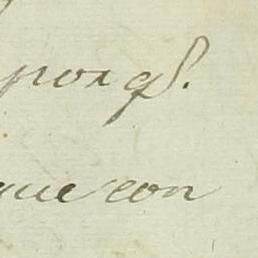 por qͤ.
que con